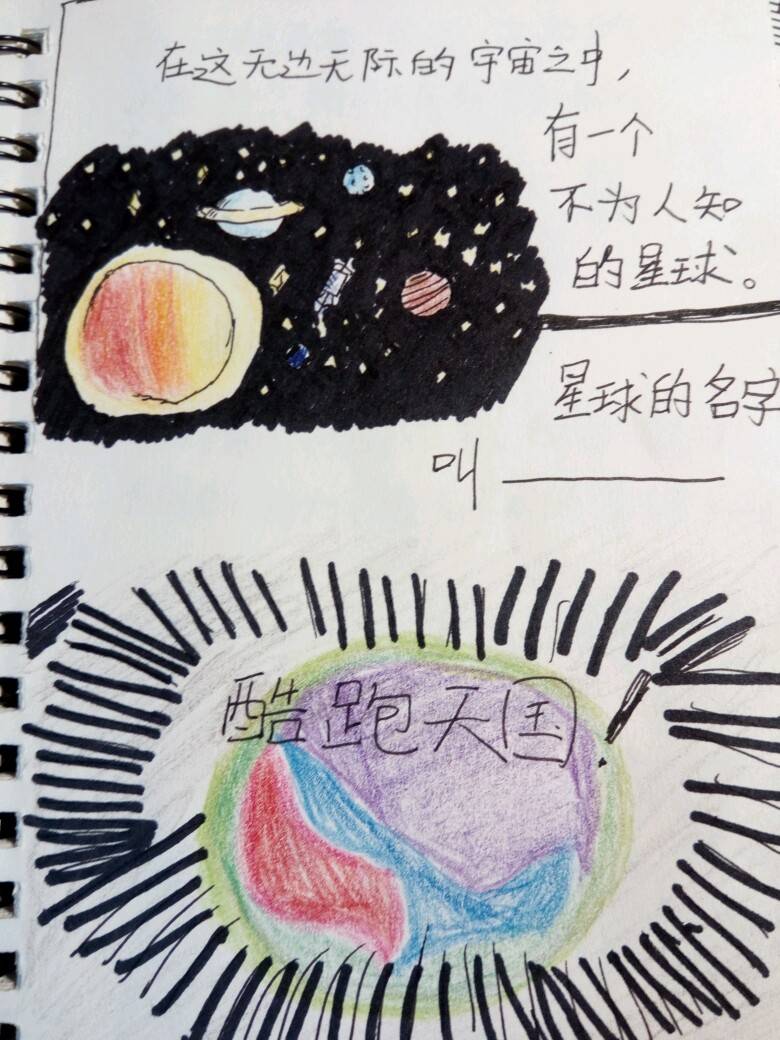 在这无边无际的宇宙之中，
有一个
不为人知
的星球。
星球的名字
叫
酷跑天国！